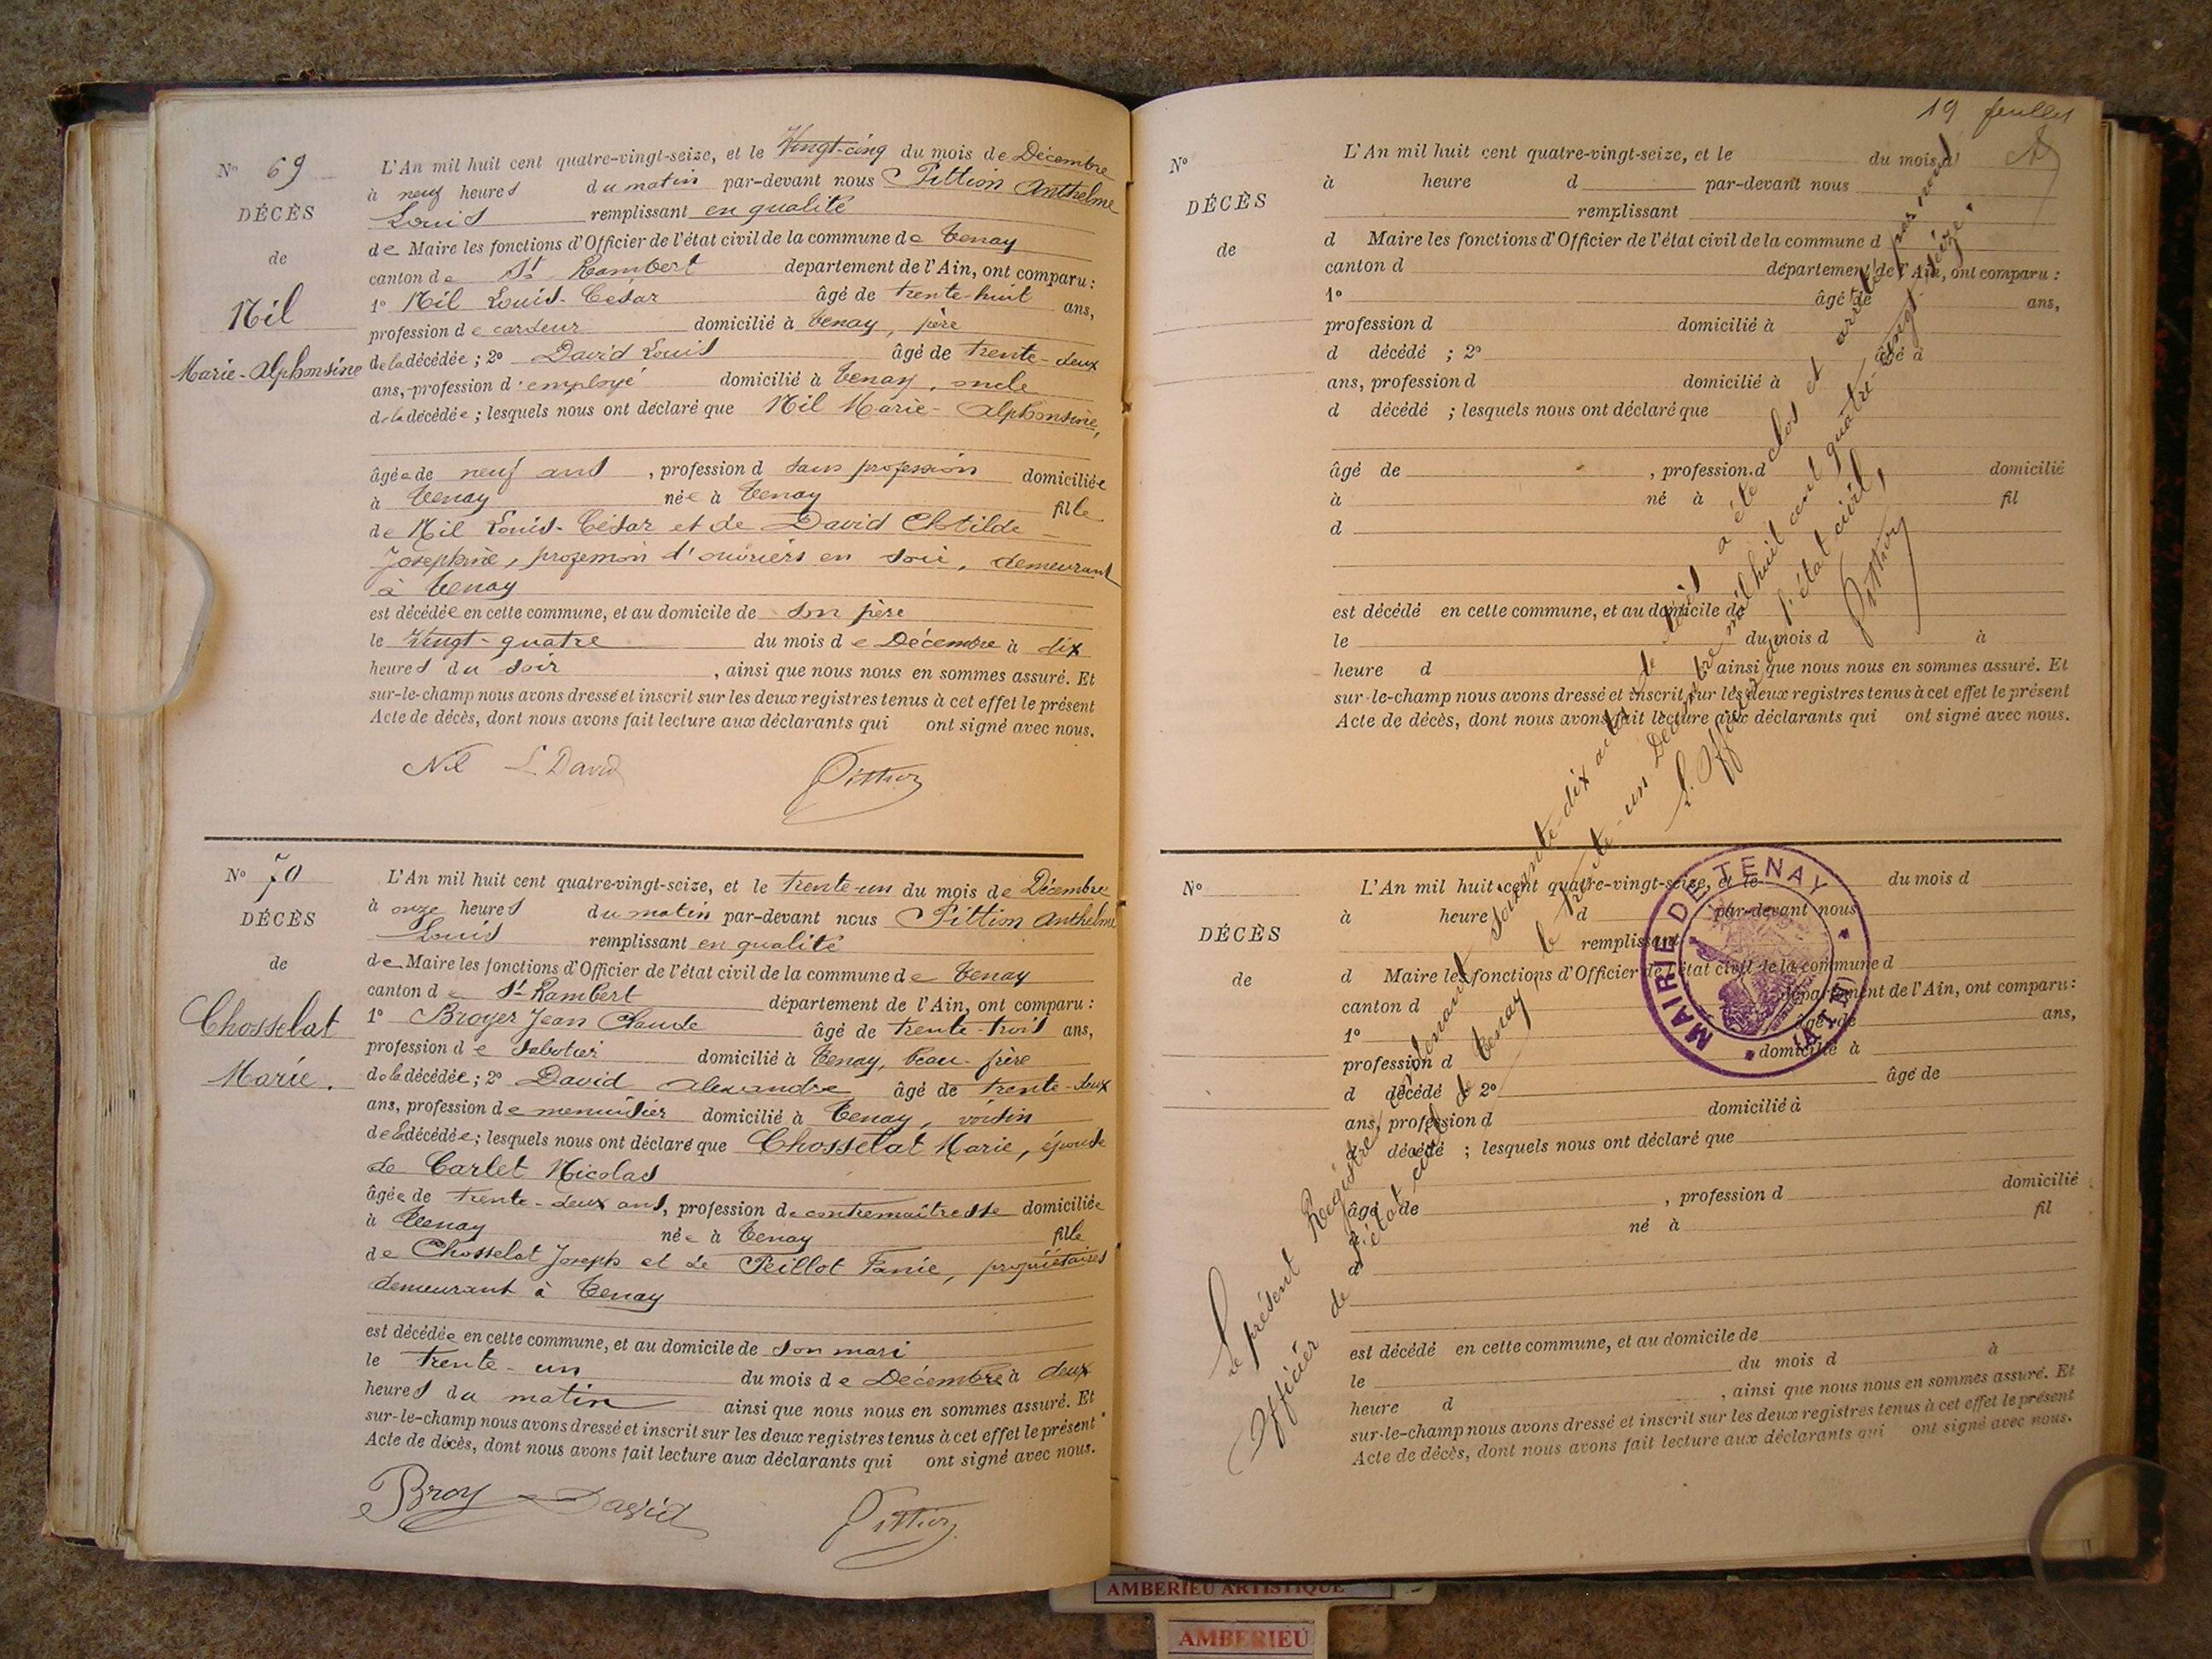 N° 69
DÉCÈS
de
Nil
Marie-Alphonsine
L'An mil huit cent quatre-vingt-seize, et le Vingt-cinq du mois de Décembre
à neuf heures du matin par-devant nous Pittion Anthelme
Louis remplissant en qualité
de Maire les fonctions d'Officier de l'état civil de la commune de Tenay
canton de St Rambert département de l'Ain, ont comparu :
1° Nil Louis-César âgé de trente-huit ans,
profession de cardeur domicilié à Tenay, père
de la décédée ; 2° David Louis âgé de trente-deux
ans, profession d'employé domicilié à Tenay, oncle
de la décédée ; lesquels nous ont déclaré que Nil Marie-Alphonsine,
âgée de neuf ans, profession d sans profession domiciliée
à Tenay née à Tenay fille
de Nil Louis-César et de David Clotilde
Josephine, profession d'ouvriers en soie, demeurant
à Tenay
est décédée en cette commune, et au domicile de son père
le Vingt-quatre du mois de Décembre à dix
heures du soir, ainsi que nous nous en sommes assuré. Et
sur-le-champ nous avons dressé et inscrit sur les deux registres tenus à cet effet le présent
Acte de décès, dont nous avons fait lecture aux déclarants qui ont signé avec nous.
Nil L David Pittion
N° 70
DÉCÈS
de
Chosselat
Marie.
L'An mil huit cent quatre-vingt-seize, et le trente-un du mois de Décembre
à onze heures du matin par-devant nous Pittion Anthelme
Louis remplissant en qualité
de Maire les fonctions d'Officier de l'état civil de la commune de Tenay
canton de St Rambert département de l'Ain, ont comparu :
1° Broyer Jean Claude âgé de trente-trois ans,
profession de sabotier domicilié à Tenay, beau-frère
de la décédée ; 2° David Alexandre âgé de trente-deux
ans, profession de menuisier domicilié à Tenay, voisin
de la décédée ; lesquels nous ont déclaré que Chosselat Marie, épouse
de Carlet Nicolas
âgée de trente-deux ans, profession de contremaîtresse domiciliée
à Tenay née à Tenay fille
de Chosselat Joseph et de Peillot Fanie, propriétaires
demeurant à Tenay
est décédée en cette commune, et au domicile de son mari
le trente-un du mois de Décembre à deux
heures du matin ainsi que nous nous en sommes assuré. Et
sur-le-champ nous avons dressé et inscrit sur les deux registres tenus à cet effet le présent
Acte de décès, dont nous avons fait lecture aux déclarants qui ont signé avec nous.
Broy David Pittion
19 feuillet
N°
DÉCÈS
de
L'An mil huit cent quatre-vingt-seize, et le du mois d
à heure d par-devant nous
remplissant
d Maire les fonctions d'Officier de l'état civil de la commune d
canton d département de l'Ain, ont comparu :
1° âgé de ans,
profession d domicilié à
d décédé ; 2° âgé d
ans, profession d domicilié à
d décédé ; lesquels nous ont déclaré que
âgé de , profession d domicilié
à né à fil
d
est décédé en cette commune, et au domicile de
le du mois d à
heure d ainsi que nous nous en sommes assuré. Et
sur-le-champ nous avons dressé et inscrit sur les deux registres tenus à cet effet le présent
Acte de décès, dont nous avons fait lecture aux déclarants qui ont signé avec nous.
N°
DÉCÈS
de
L'An mil huit cent quatre-vingt-seize, et le du mois d
à heure d par-devant nous
remplissant
d Maire les fonctions d'Officier de l'état civil de la commune d
canton d département de l'Ain, ont comparu :
1° âgé de ans,
profession d domicilié à
d décédé ; 2° âgé de
ans, profession d domicilié à
d décédé ; lesquels nous ont déclaré que
âgé de , profession d domicilié
à né à fil
d
est décédé en cette commune, et au domicile de
le du mois d à
heure d , ainsi que nous nous en sommes assuré. Et
sur-le-champ nous avons dressé et inscrit sur les deux registres tenus à cet effet le présent
Acte de décès, dont nous avons fait lecture aux déclarants qui ont signé avec nous.
Le présent Registre contenant soixante-dix actes de décès a été clos et arrêté par nous
Officier de l'état civil de Tenay, le trente-un Décembre mil huit cent quatre-vingt-seize.
L'Officier de l'état civil,
Pittion
MAIRIE DE TENAY
(AIN)
AMBERIEU ARTISTIQUE
AMBERIEU